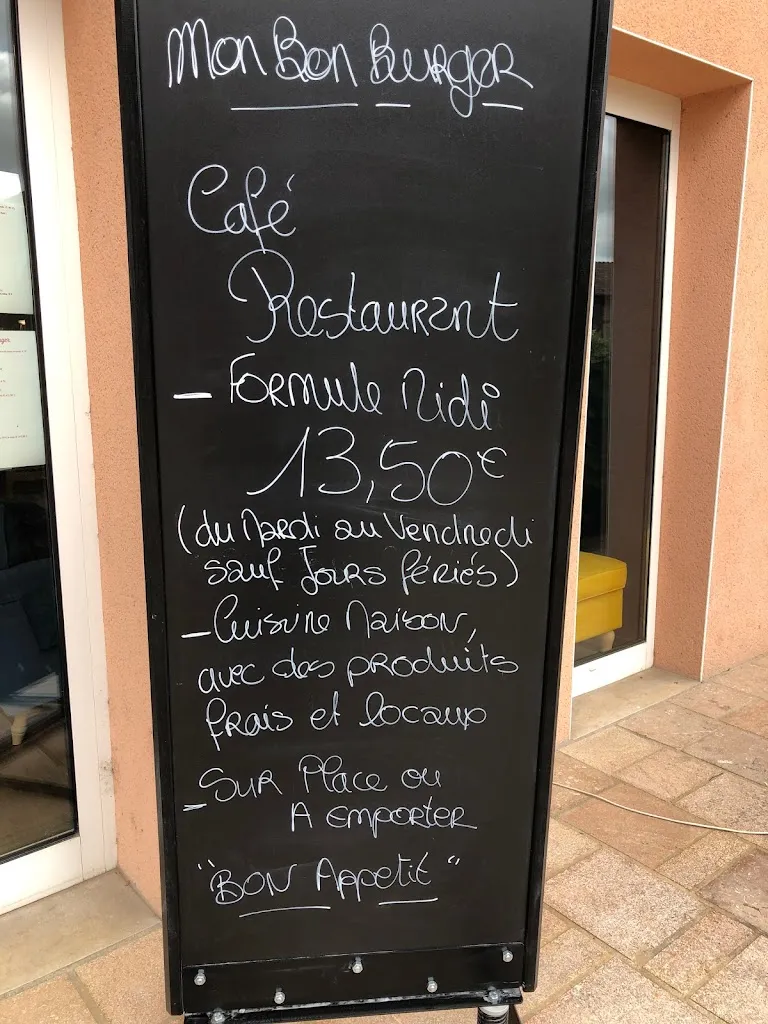 Mon Bon Burger
Café
Restaurant
- Formule Midi
13,50€
(du Mardi au Vendredi
sauf Jours fériés)
- Cuisine Maison,
avec des produits
frais et locaux
- Sur Place ou
A emporter
"Bon Appetit"